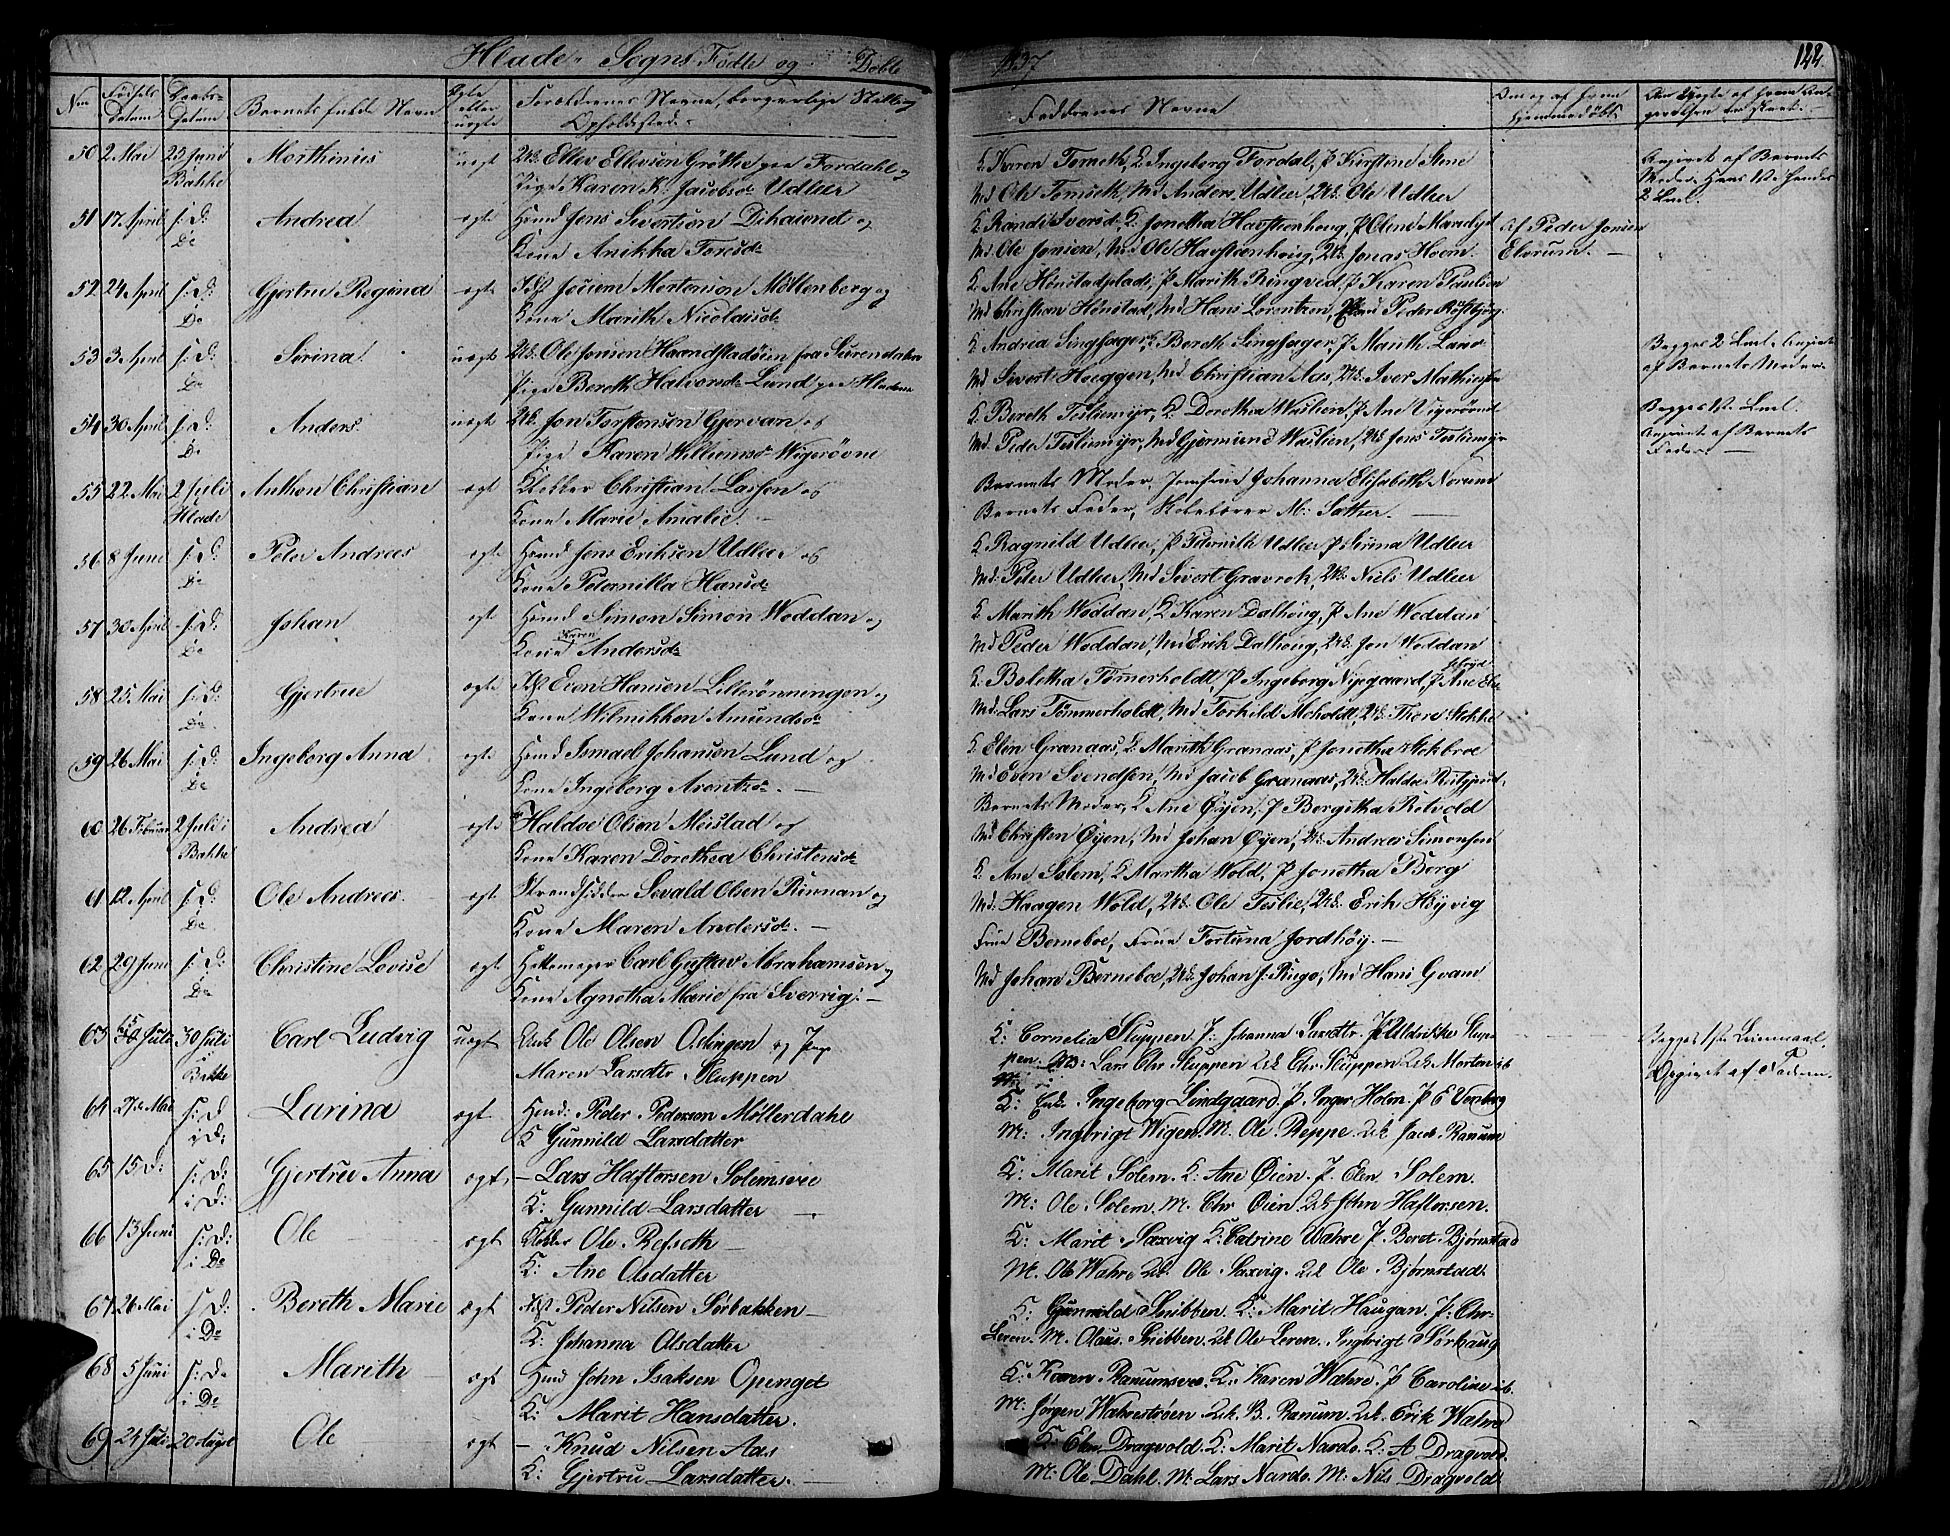 Hlade Sogns Fødte og Døbte 1837 122
Nro Fødsels Datum Daabs Datum Barnets fulde Navn ægte eller uægte Forældrenes Navne, borgerlige Stilling og Opholdssted Faddrenes Navne Om og af hvem hjemmedøbt
50 2 Mai 25 Juni Bakke Morthinius uægt Ellev Ellevsen Grötte paa Fordahl og
Pige Karen K. Jacobsd Udleer
K. Karen Tomseth, K Ingeborg Fordal, P Kirstine Stene
Md Ole Tomseth, Md Anders Udleer, Uk. Ole Udleer
Angivet af Barnets
Moder. Hans 1ste hendes
2 Leml.
51 17 April s: D: De Andrea ægte Hmd Jens Sivertsen Dihaiendt og
Kone Anikka Toresd
K Randi Sversd, K. Jonetha Havstenhoug, P Oline
Md Ole Jonsen, Md Ole Havstenhoug, Uk. Jonas Hoem.
af Peder Jonsen
Elvrum.
52 24 April s: D: De Gjertrue Regina ægte Jouem Mortenson Möllenberg og
Kone Marith Nicolaisd
K. Ane Hönstadplads, P Marith Ringved, P Karen Paulsen
Md Christian Hönstad, Md Hans Lorentzen, Peder
53 3 April s: D: De Serina uægte Uk. Ole Jonsen Haandstadöien fra Surendalen
Pige Bereth Halvorsd Lund paa Hladene
K. Andrea Singsager, K Bereth Singsager, P Marith Lund
Md Sivert Hoeggen, Md Christian Aas, Uk. Iver Mathiesen
Begges 2 Leml. Angivet
af Barnets Moder
54 30 April s: D: De Anders uægt Uk. Jon Torstensen Gjervan og
Pige Karen Willumsd Wigerövne
K. Bereth Teslimyr, K. Dorothea Waslien, P Ane Vigerövne
Md. Peder Teslimyr, Md Gjermund Waslien, Uk. Jens Teslimyr
Begges 1ste Leml.
Angivet af Barnets
Fader
55 22 Mai 2 Juli Hlade Anthon Christian ægt Klokker Christian Lassen og
Kone Marie Amalie.
Barnets Moder, Jomfrue Johanna Elisabeth Norum
Barnets Fader, Skolelærer M: Sæther.
56 8 Juni s: D: De Peter Andreas ægt Hmd Jens Eriksen Udleer og
Kone Peternilla Hansd
K Ragnild Udleer, P Peternilla Udleer, P Sirina Udleer
Md. Peter Udleer, Md Sivert Gravrok, Uk. Niels Udleer
57 30 April s: D: De Johan ægt Hmd Simon Simon Woddan og
Kone Karen Andersd
K. Marith Woddan, K Karen Dalhoug, P Ane Woddan
Md Peder Woddan, Md Erik Dalhoug, Uk. Jon Woddan
58 25 Mai s: D: De Gjertrue ægte Even Hansen Lillerönningen og
Kone Wilmikken Amundsd
K. Boletha Tömerholdt, P Ingeborg Nygaard, P Ane
Md. Lars Tömmerholdt, Md Torkild Moholdt, Uk. Thore Stokke
59 26 Mai s: D: De Ingeborg Anna ægte Hmd Ismael Johansen Lund og
Kone Ingeborg Arentzd.
K. Elen Granaas, K. Marith Granaas, P Jonetha Stokbroe
Md Even Svendsen, Md Jacob Granaas, Uk. Haldo
60 26 Februar 2 Juli i Bakke Andrea ægte Haldoe Olsen Meistad og
Kone Karen Dorethea Christensd
Barnets Moder, K Ane Öyen, P Bergitha Retvold
Md Christen Öyen, Md Johan Öyen, Uk. Andreas Simonsen
61 12 April s: D: De Ole Andreas ægt Strandsidder Sevald Olsen Rönnan og
Kone Maren Andersd.
K. Ane Solem, K Martha Wold, P Jonetha Berg
Md. Haagen Wold, Uk. Ole Teslie, Uk. Erik Höyvig
62 29 Juni s: D: De Christine Lovise ægt Hattemager Carl Gustav Abrahamsen og
Kone Agnetha Marie fra Sverrig.
Frue Berneboe, Frue Fortuna Jordhöy.
Md Johan Berneboe, Uk. Johan J. Ringo, Md Hans Qvam
63 Juli 30 Juli Bakke Carl Ludvig uægt Unk Ole Olsen Oslingen og Pige
Maren Larsdtr Sluppen
K: Cornelia Sluppen P: Johanna Larsdtr. P Uldrikke Slup-
pen. Lars Chr Sluppen Uk Chr. Sluppen Uk Morten ib
Begges 1ste Leiermaal.
Opgivet af Faderen.
64 27de Mai s: D i D: Lurina ægt Hmd: Peder Pedersen Möllerdahl
K Gunnild Larsdatter
K: Enke Ingeborg Lindgaard P. Inger Holm P E Vonberg
M: Ingbrigt Wigen M. Ole Reppe Uk Jacob Ranum
65 15 D: s: D: i D: Gjertru Anna ægt – Lars Haftorsen Solemsvie
K: Gunnild Larsdatter
K: Marit Solem. K: Ane Öien P. Elen Solem.
M: Ole Solem. M. Chr Öien Uk John Haftorsen.
66 13 Juni s: D: i De Ole ægt Klokker Ole Refseth
K: Ane Olsdatter
K: Marit Saxvig K: Catrine Wahre P Beret Bjørnstad
M. Ole Wahre Uk Ole Saxvig. Uk Ole Bjørnstad.
67 26 Mai s: D: i De Bereth Marie ægt Peder Nilsen Sörbakken
K: Johanna Olsdatter
K: Gunnild Snibben K: Marit Haugan, P: Chr
Leren. M. Olaus Snibben Uk Ole Leren. Ingbrigt Sörhaug
68 5 Juni s: De i De Marith ægt Hmd John Isaksen Openget
K: Marit Hansdatter.
K: Karen Ranumsvee. K: Karen Wahre. P Caroline ib.
M: Jørgen Wahreströen Uk. B. Ranum Uk Erik Wahre
69 24 Juli 20 August Ole ægt – Knud Nilsen Aas
K: Gjertru Larsdatter.
K: Dragvold. K: Marit Nardo. K: A Dragvold.
M: Ole Dahl. M: Lars Nardo. M: Nils Dragvold